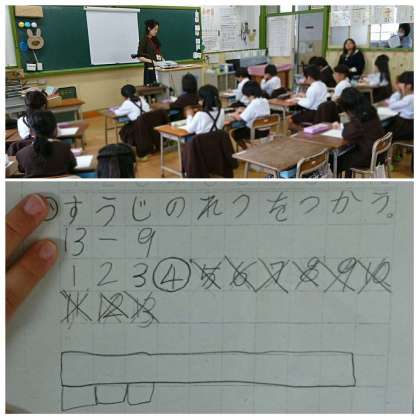 すうじのれつをつかう。
13-9
1 2 3 ④ 5 6 7 8 9 10
11 12 13